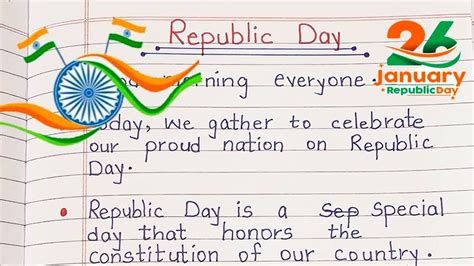 Republic Day
26
January
Republic Day
morning everyone.
, we gather to celebrate
our proud nation on Republic
Day.
Republic Day is a Sep Special
day that honors the
constitution of our country.